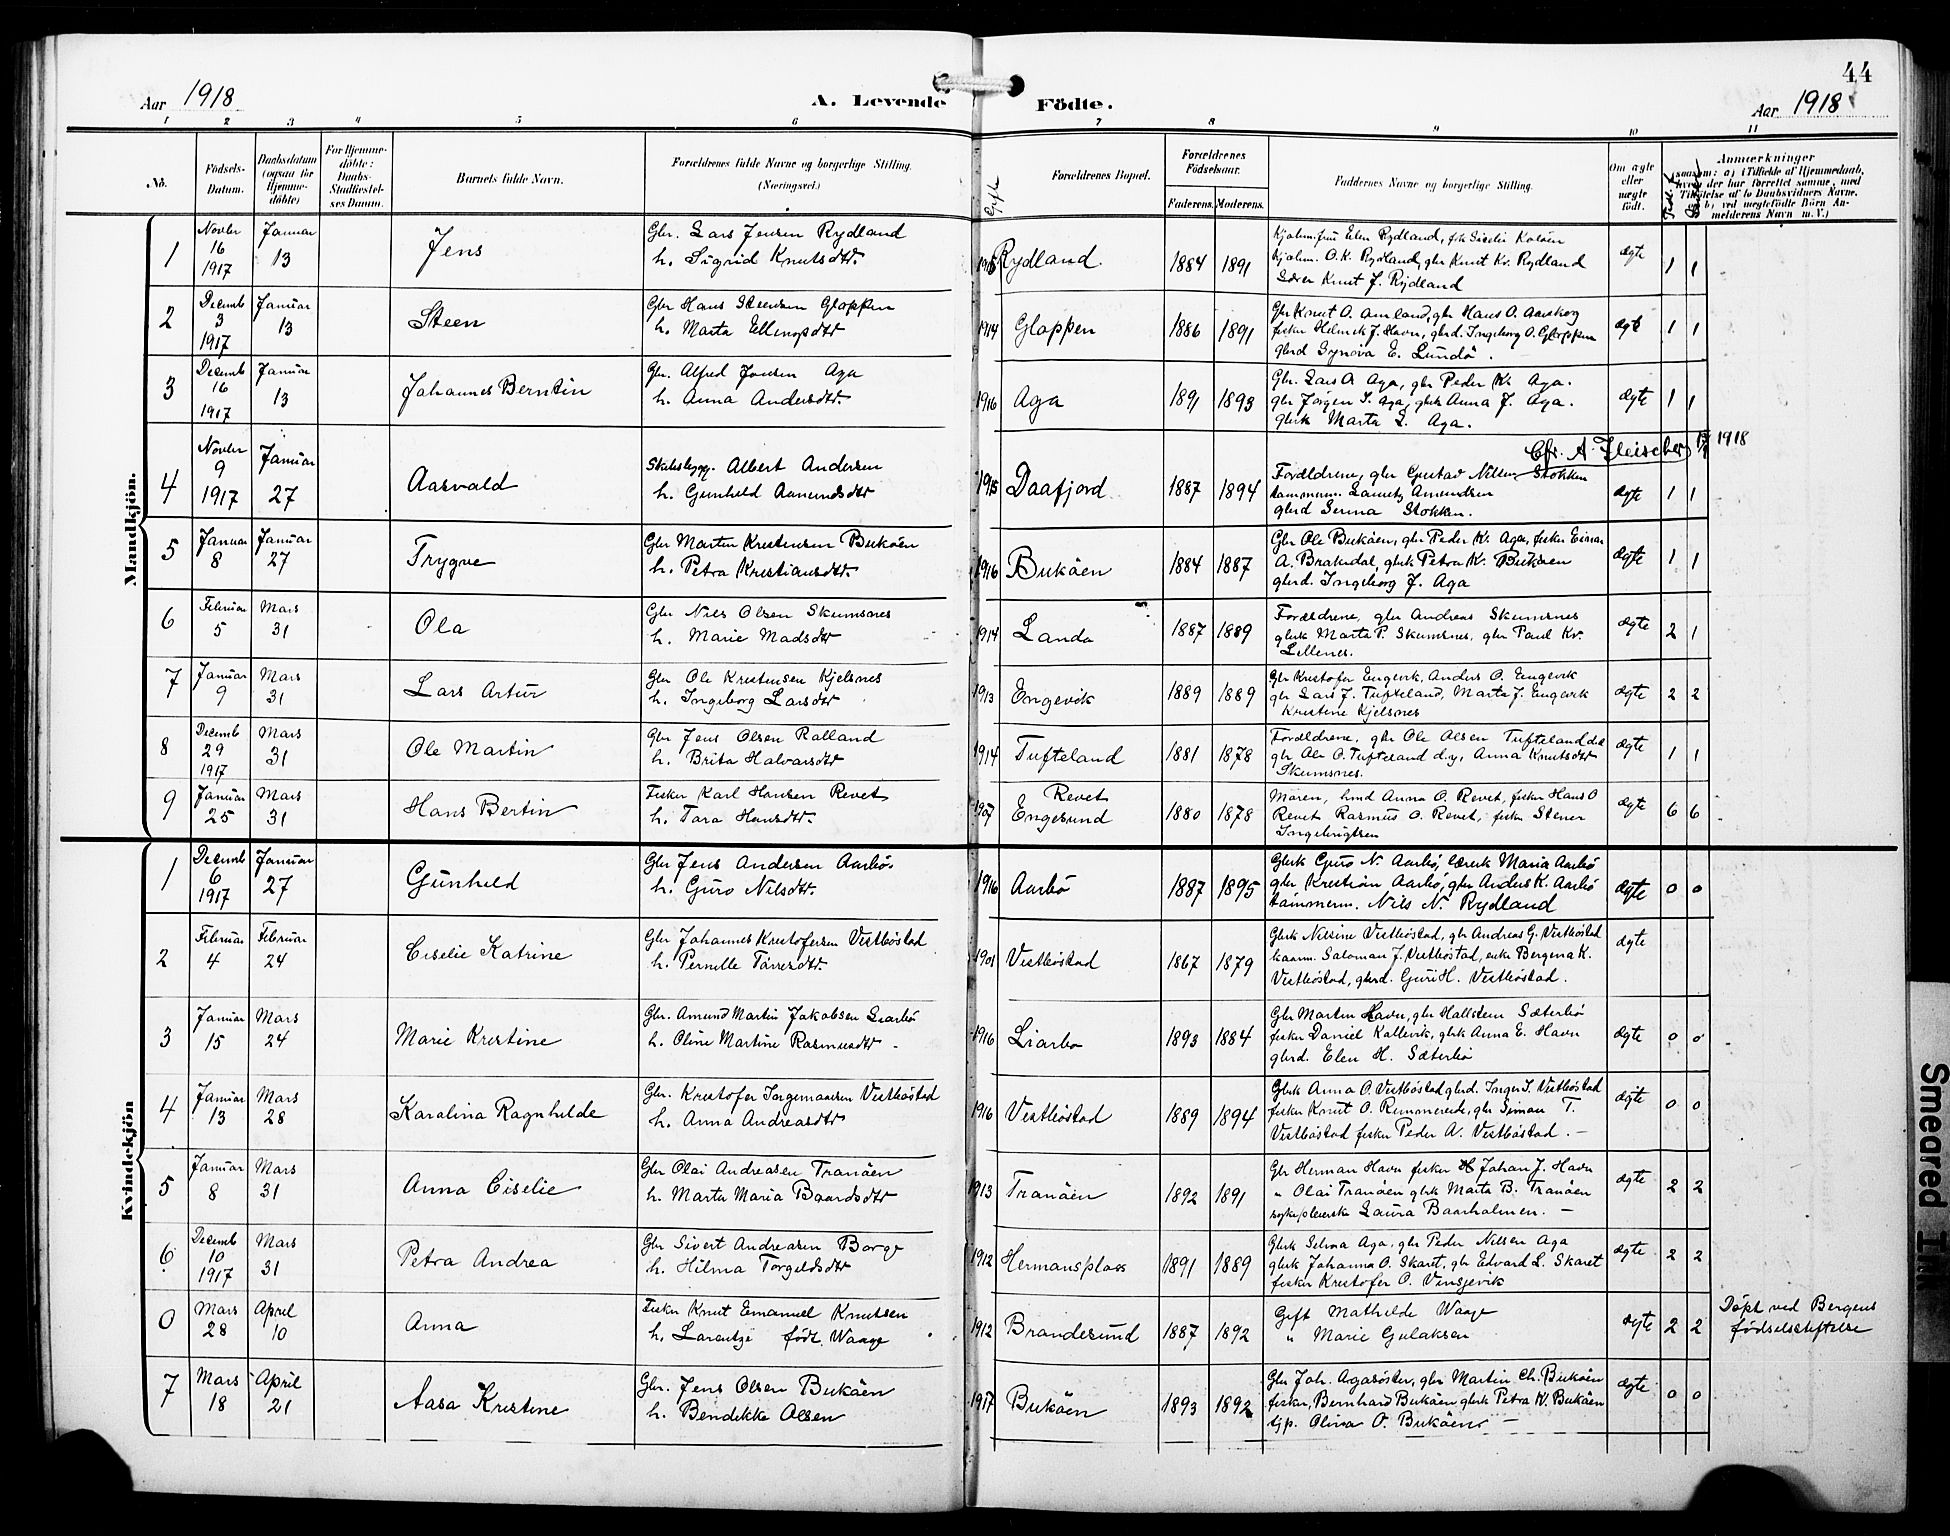 44
Aar 1918
A. Levende Födte.
Aar 1918
1 2 3 4 5 6 7 8 9 10 11
No.
Födsels-Datum.
Daabsdatum (ogsaa for Hjemme-döbte)
For Hjemme-döbte: Daabs-Stadfæstel-ses Datum.
Barnets fulde Navn.
Forældrenes fulde Navne og borgerlige Stilling. (Næringsvei.)
Gifte
Forældrenes Bopæl.
Forældrenes Födselsaar.
Faderens. Moderens.
Faddernes Navne og borgerlige Stilling.
Om ægte eller uægte födt.
Anmærkninger
saasom: a) (Tilfælde af Hjemmedaab,
Mandkjön.
1 Novbr 16 1917 Januar 13 Jens Gbr. Lars Jensen Rydland
h. Sigrid Knutsdtr. Rydland 1884 1891 Kjøbm.fru Elen Rydland, frk Siselie Koløen
Kjøbm. O. K. Rydland, gbr Knut Kr. Rydland
Lærer Knut J. Rydland ægte 1 1
2 Decemb 3 1917 Januar 13 Steen Gbr Hans Steensen Gloppen
h. Marta Ellingsdtr 1914 Gloppen 1886 1891 Gbr Knut O. Amland, gbr Hans O. Aarskog
fisker Henrik J. Havn, gbrd. Ingeborg O. Gloppen
gbrd Synøva E. Lundø. ægte 1 1
3 Decemb 16 1917 Januar 13 Johannes Berntin Gbr. Alfred Jonsen Aga
h. Anna Andersdtr. 1916 Aga 1891 1893 Gbr. Lars A Aga, gbr Peder K. Aga.
gbr Jørgen S. Aga, gbrk Anna J. Aga.
gbrk Marta L. Aga. ægte 1 1
4 Novbr 9 1917 Januar 27 Aasvald Skibsbygg. Albert Andersen
h. Gunhild Aamundsdtr 1915 Daafjord 1887 1894 Cfr. A. Fleischer 1918
Forældrene, gbr Gustav Nilsen Stokken
tømmerm. Lauritz Amundsen
gbrd Serina Stokken. ægte 1 1
5 Januar 8 Januar 27 Trygve Gbr Martin Kristensen Bukøen
h. Petra Kristiansdtr. 1916 Bukøen 1884 1887 Gbr Ole Bukøen, gbr Peder K. Aga, fisker Einar
A. Brakedal, gbrk Petra K. Bukøen
gbrd. Ingeborg J. Aga ægte 1 1
6 Februar 5 Mars 31 Ola Gbr Nils Olsen Skumsnes
h. Marie Madsdtr 1914 Landa 1887 1889 Forældrene, gbr Andreas Skumsnes
gbrk Marta P. Skumsnes, gbr Paul Kr.
Lillenes. ægte 2 1
7 Januar 9 Mars 31 Lars Artur Gbr Ole Kristensen Kjelsnes
h. Ingeborg Larsdtr 1913 Engevik 1889 1889 Gbr Kristofer Engevik, Anders O. Engevik
gbr Lars J. Tufteland, Marta J. Engevik
Kristine Kjelsnes ægte 2 2
8 Decemb 29 1917 Mars 31 Ole Martin Gbr Jens Olsen Ralland
h. Brita Halvarsdtr 1914 Tufteland 1881 1878 Forældrene, gbr Ole Olsen Tufteland d.e
gbr Ole O. Tufteland d.y, Anna Knutsdtr
Skumsnes. ægte 1 1
9 Januar 25 Mars 31 Hans Bertin Fisker Karl Hansen Revet
h. Tora Hansdtr. 1907 Revet Engesund 1880 1878 Moren, hmd Anna O. Revet, fisker Hans O
Revet Rasmus O. Revet, fisker Stener
Ingebrigtsen ægte 6 6
Kvindekjön
1 Decemb 6 1917 Januar 27 Gunhild Gbr Jens Andersen Aarbø.
h. Guro Nilsdtr. 1916 Aarbø 1887 1895 Gbrk Guro N. Aarbø, lærerk Maria Aarbø
gbr Kristian Aarbø, gbr Anders K. Aarbø
tømmerm. Nils N. Rydland ægte 0 0
2 Februar 4 Februar 24 Ciselie Katrine Gbr Johannes Kristofersen Vestbøstad
h. Pernille Tøresdtr. 1901 Vestbøstad 1867 1879 Gbrk Nilsine Vestbøstad, gbr Andreas G. Vestbøstad
kaarm. Salomon J. Vestbøstad, enke Bergena K.
Vestbøstad, gbrd. Guri H. Vestbøstad. ægte
3 Januar 15 Mars 24 Marie Kristine Gbr. Amund Martin Jakobsen Liarbø
h. Oline Martine Rasmusdtr 1916 Liarbø 1893 1884 Gbr Marten Havn, gbr Hallstein Sæterbø
fisker Daniel Kallevik, gbrk Anna E. Havn
gbrd. Elen H. Sæterbø ægte 0 0
4 Januar 13 Mars 28 Karolina Ragnhilde Gbr. Kristofer Ingemansen Vestbøstad
h. Anna Andreasdtr 1916 Vestbøstad 1889 1894 Gbrk Anna O. Vestbøstad gbrd. Inger S. Vestbøstad
fisker Knut O. Rimmereide, gbr Simon T.
Vestbøstad fisker Peder A. Vestbøstad. ægte 0 0
5 Januar 8 Mars 31 Anna Ciselie Gbr Olai Andreasen Tranøen
h. Marta Maria Baardsdtr 1913 Tranøen 1892 1891 Gbr Herman Havn fisker Johan J. Havn
" Olai Tranøen gbrk Marta B. Tranøen
sykepleierske Laura Baarholmen. ægte 2 2
6 Decemb 10 1917 Mars 31 Petra Andrea Gbr Sivert Andreasen Borge
h. Hilma Torgeldsdtr 1912 Hermansplass 1891 1889 Gbrk Selma Aga, gbr Peder Nilsen Aga
gbrk Johanna O. Skaret, gbr Edvard L. Skaret
fisker Kristofer O. Vinsjevik ægte 2 2
0 Mars 28 April 10 Anna Fisker Knut Emanuel Knutsen
h. Larentze født. Waage 1912 Brandesund 1887 1892 Gift Mathilde Waage
" Marie Gulaksen ægte 2 2 Døpt ved Bergens
fødselsstiftelse
7 Mars 18 April 21 Aasa Kristine Gbr. Jens Olsen Bukøen
h. Bendikke Olsen 1917 Bukøen 1893 1892 Gbr Joh. Agasøster, gbr Martin Ch. Bukøen
fisker, Bernhard Bukøen gbrk Petra K. Bukøen
tjp. Olina O. Bukøen. ægte 0 0
Smeared Ink